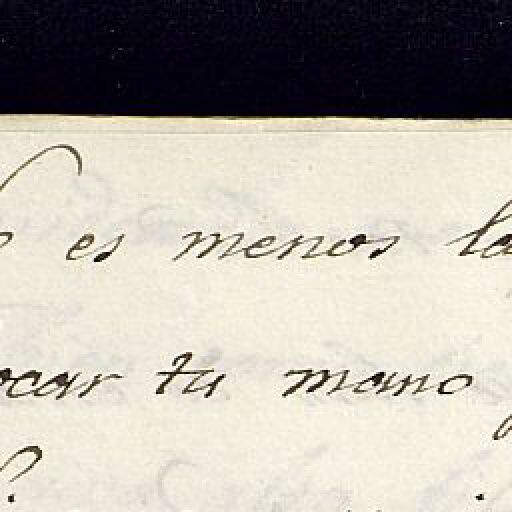 es menos la
ocar tu mano